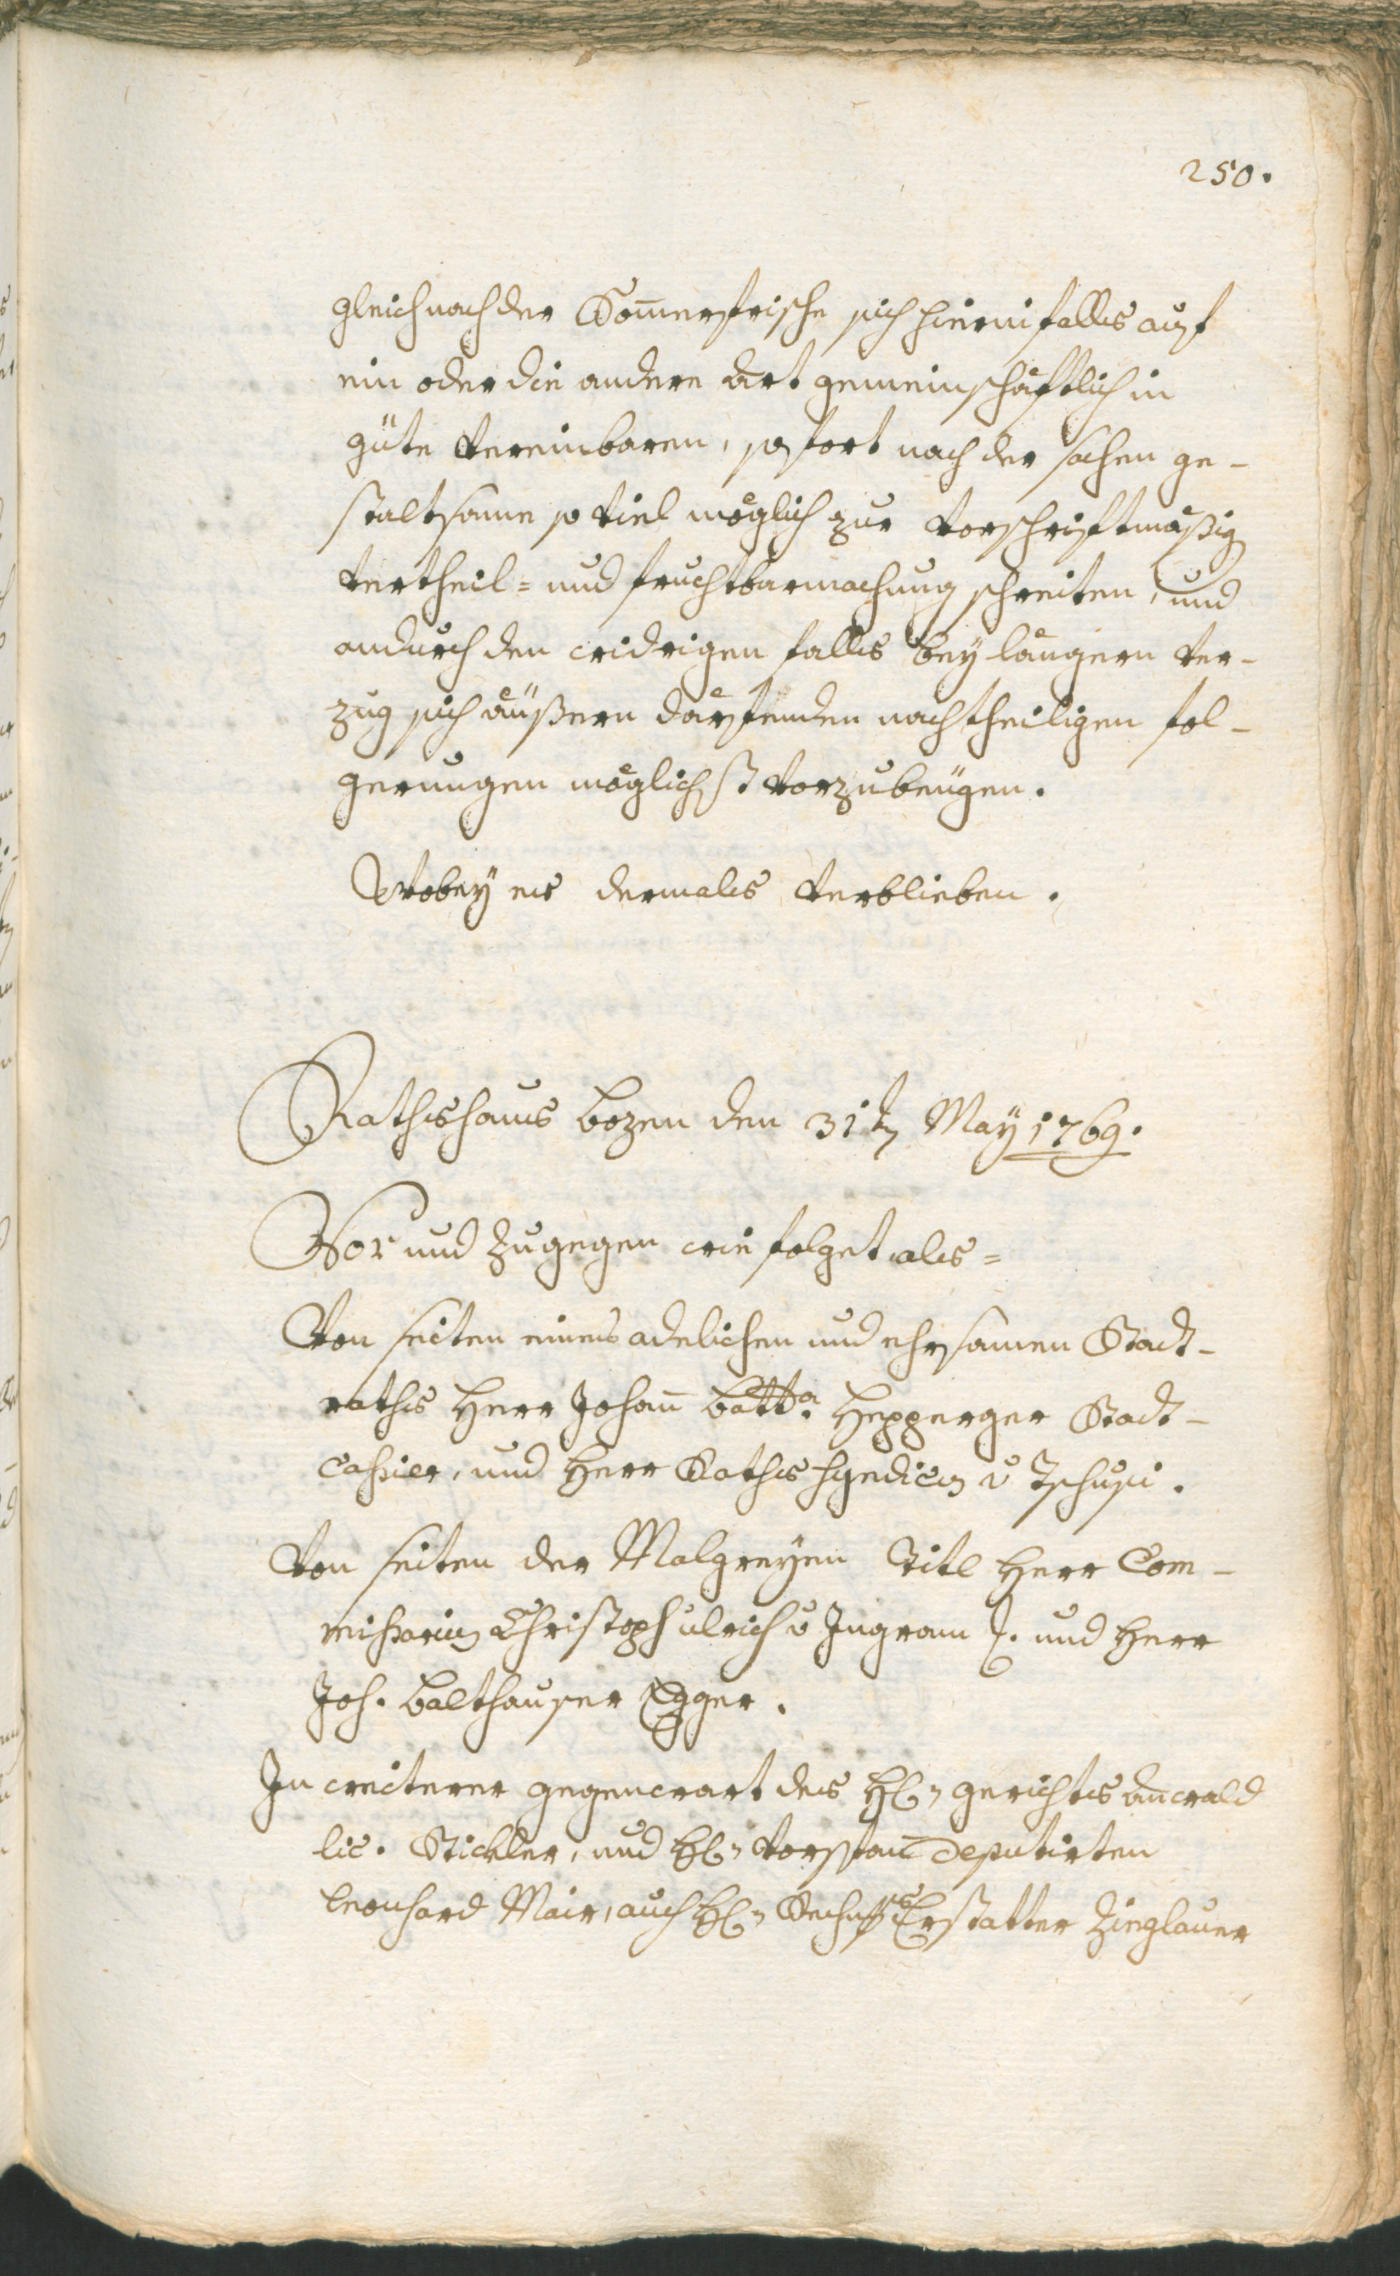 250.
gleich nach der Som̅erfrische sich hierinfalls auf
ein oder die andere Art gemeinschäftlich in
güte vereinbaren, sofort nach der sachen ge-
staltsame so viel möglich zur vorschriftmäßig
vertheil= und fruchtbarmachung schreiten, und
andurch den widrigen falls bey längern ver-
zug sich äüßern därfenden nachtheiligen fol-
gerungen möglichst vorzubeügen.
Wobey es dermales verblieben.
Rathshaus bozen den 31t. May 1769.
Vor und zugegen wie folget, als=
Von seiten eines adelichen und ehrsamen Stadt-
raths Herr Johan̅ batta. Hepperger Stadt-
cassier, und Herr Raths Syndicus v Tschusi.
Von seiten der Malgreyen Titl Herr Com-
missarius Christoph ulrich v Ingram p. und Herr
Joh. balthauser Egger.
In weiterer gegenwart des H: gerichts Anwald
lic. Stickler, und H: vorstan̅ Deputirten
leonhard Mair, auch H: Erstatter Zieglauer